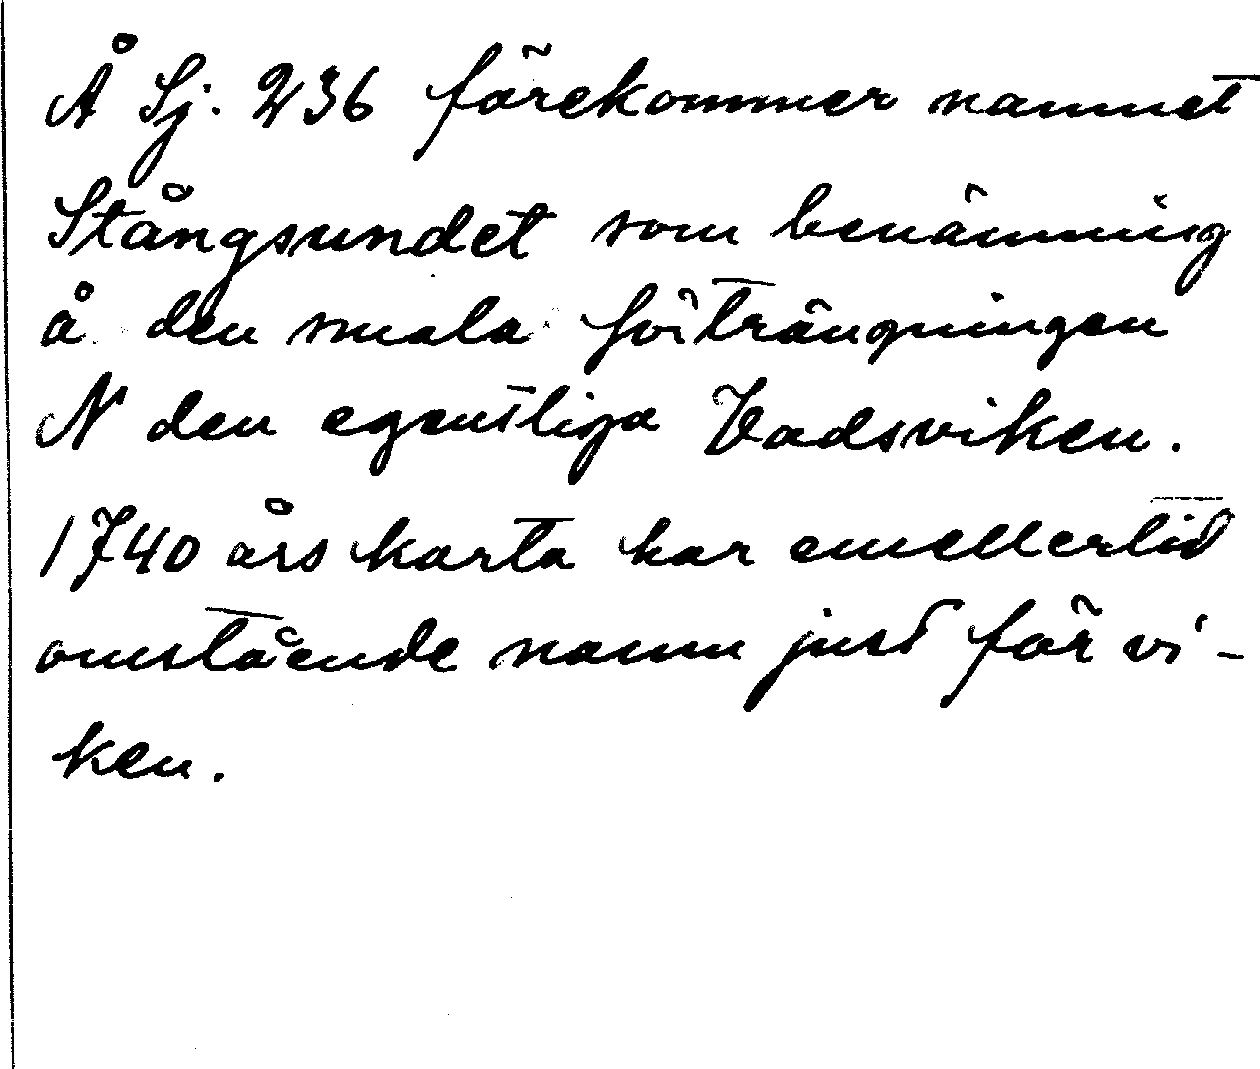 Å Sj. 236 förekommer namnet
Stångsundet som benämning
å den smala förträngningen
N den egentliga Vadsviken.
1740 års karta har emellertid
omstående namn just för vi-
ken.